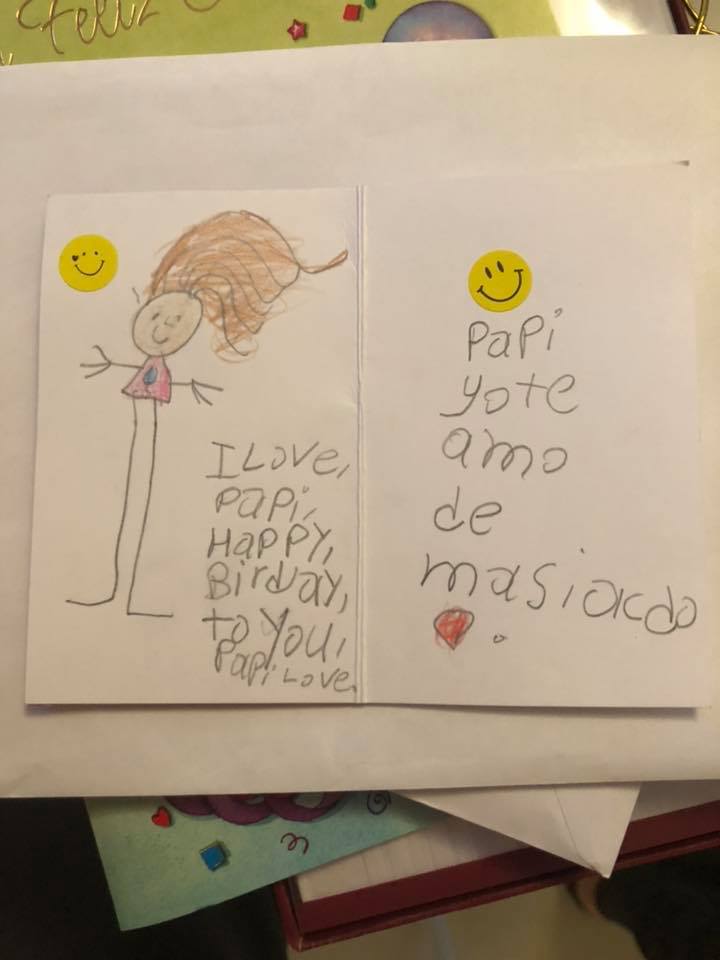 Feliz
I Love,
Papi,
Happy,
Birday,
to you,
Papi Love.
Papi
yo te
amo
de
masiacdo
.